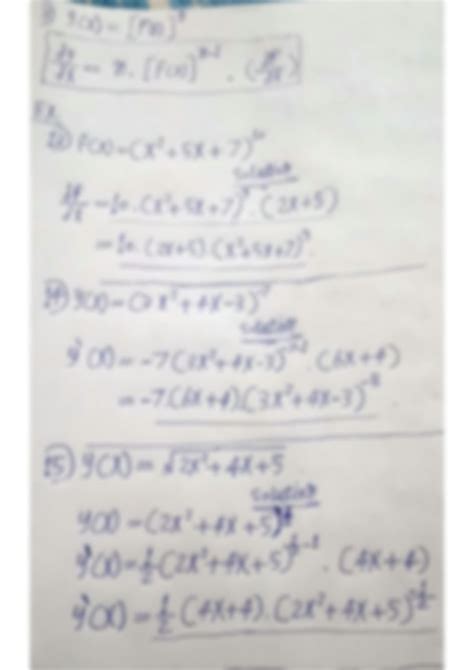 y(x) = [f(x)]ⁿ
dy/dx = n · [f(x)]ⁿ⁻¹ · (dy/dx)
EX.
f(x) = (x² + 5x + 7)¹⁰
Solution
dy/dx = 10 · (x² + 5x + 7)⁹ · (2x + 5)
= 10 · (2x + 5) (x² + 5x + 7)⁹.
y(x) = (3x² + 4x - 3)⁻⁷
Solution
y'(x) = -7 (3x² + 4x - 3) · (6x + 4)
= -7 (6x + 4) (3x² + 4x - 3)⁻⁸
y(x) = √2x² + 4x + 5
Solution
y(x) = (2x² + 4x + 5)
y'(x) = ½ (2x² + 4x + 5)^½⁻¹ · (4x + 4)
y'(x) = ½ (4x + 4) · (2x² + 4x + 5)